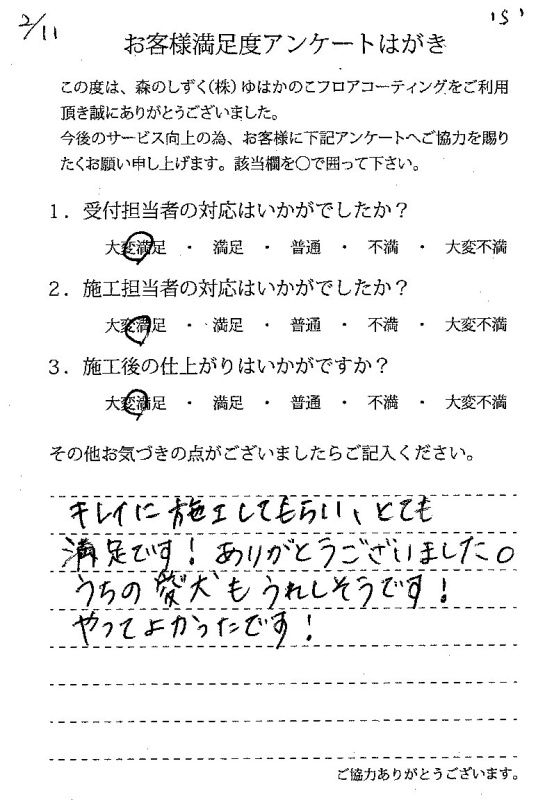 2/11
'15'
お客様満足度アンケートはがき
この度は、森のしずく(株)ゆはかのこフロアコーティングをご利用
頂き誠にありがとうございました。
今後のサービス向上の為、お客様に下記アンケートへご協力を賜り
たくお願い申し上げます。該当欄を〇で囲って下さい。
1．受付担当者の対応はいかがでしたか？
大変満足 ・ 満足 ・ 普通 ・ 不満 ・ 大変不満
2．施工担当者の対応はいかがでしたか？
大変満足 ・ 満足 ・ 普通 ・ 不満 ・ 大変不満
3．施工後の仕上がりはいかがですか？
大変満足 ・ 満足 ・ 普通 ・ 不満 ・ 大変不満
その他お気づきの点がございましたらご記入ください。
キレイに施工してもらい、とても
満足です！ありがとうございました。
うちの愛犬もうれしそうです！
やってよかったです！
ご協力ありがとうございます。